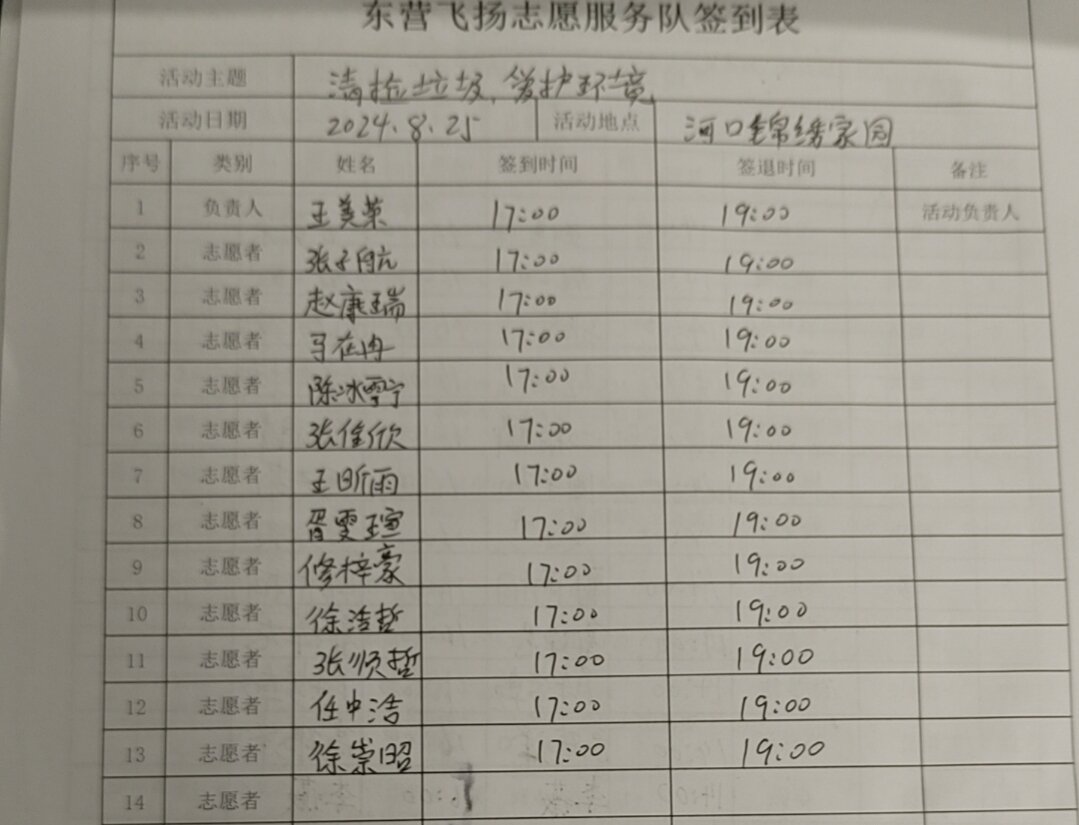 东营飞扬志愿服务队签到表
活动主题 清捡垃圾,爱护环境
活动日期 2024.8.25 活动地点 河口锦绣家园
序号 类别 姓名 签到时间 签退时间 备注
1 负责人 王美荣 17:00 19:00 活动负责人
2 志愿者 张子航 17:00 19:00
3 志愿者 赵康瑞 17:00 19:00
4 志愿者 17:00 19:00
5 志愿者 陈冰雪宁 17:00 19:00
6 志愿者 张佳欣 17:00 19:00
7 志愿者 王昕雨 17:00 19:00
8 志愿者 胥雯瑄 17:00 19:00
9 志愿者 修梓豪 17:00 19:00
10 志愿者 徐浩哲 17:00 19:00
11 志愿者 张顺哲 17:00 19:00
12 志愿者 任中浩 17:00 19:00
13 志愿者 徐崇昭 17:00 19:00
14 志愿者